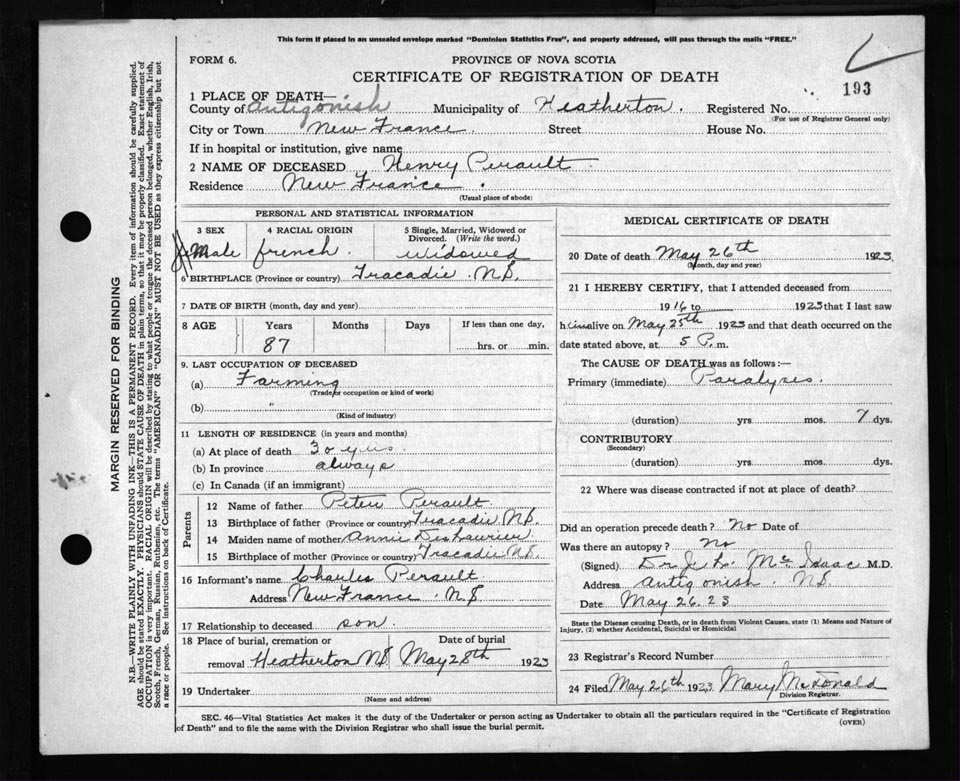 This form if placed in an unsealed envelope marked "Dominion Statistics Free", and properly addressed, will pass through the mails "FREE."
FORM 6.
PROVINCE OF NOVA SCOTIA
CERTIFICATE OF REGISTRATION OF DEATH
193
1 PLACE OF DEATH—
County of Antigonish Municipality of Heatherton. Registered No.
(For use of Registrar General only)
City or Town New France. Street House No.
If in hospital or institution, give name
2 NAME OF DECEASED Henry Perault
Residence New France.
(Usual place of abode)
PERSONAL AND STATISTICAL INFORMATION
3 SEX 4 RACIAL ORIGIN 5 Single, Married, Widowed or Divorced. (Write the word.)
Male french. Widowed
6 BIRTHPLACE (Province or country) Tracadie. N.S.
7 DATE OF BIRTH (month, day and year)
8 AGE Years Months Days If less than one day,
87 hrs. or min.
9. LAST OCCUPATION OF DECEASED
(a) Farming
(Trade or occupation or kind of work)
(b) "
(Kind of industry)
11 LENGTH OF RESIDENCE (in years and months)
(a) At place of death 30 yrs.
(b) In province always
(c) In Canada (if an immigrant)
Parents
12 Name of father Peter Perault
13 Birthplace of father (Province or country) Tracadie N.S.
14 Maiden name of mother Annie DesLaurier
15 Birthplace of mother (Province or country) Tracadie N.S.
16 Informant's name Charles Perault
Address New France. N.S
17 Relationship to deceased son.
18 Place of burial, cremation or removal Heatherton N.S Date of burial May 28th 1923
19 Undertaker
(Name and address)
MEDICAL CERTIFICATE OF DEATH
20 Date of death May 26th 1923.
(Month, day and year)
21 I HEREBY CERTIFY, that I attended deceased from
1916 to 1923 that I last saw
him alive on May 25th 1923 and that death occurred on the
date stated above, at 5 P. m.
The CAUSE OF DEATH was as follows:—
Primary (immediate) Paralyses.
(duration) yrs. mos. 7 dys.
CONTRIBUTORY
(Secondary)
(duration) yrs. mos. dys.
22 Where was disease contracted if not at place of death?
Did an operation precede death? No Date of
Was there an autopsy? No
(Signed) Dr J. L. McIsaac M.D.
Address Antigonish. N.S
Date May 26. 23
State the Disease causing Death, or in death from Violent Causes, state (1) Means and Nature of
Injury, (2) whether Accidental, Suicidal or Homicidal
23 Registrar's Record Number
24 Filed May 26th 1923. Mary McDonald
Division Registrar.
SEC. 46—Vital Statistics Act makes it the duty of the Undertaker or person acting as Undertaker to obtain all the particulars required in the "Certificate of Registration
of Death" and to file the same with the Division Registrar who shall issue the burial permit.
(OVER)
MARGIN RESERVED FOR BINDING
N.B.—WRITE PLAINLY WITH UNFADING INK—THIS IS A PERMANENT RECORD. Every item of information should be carefully supplied.
AGE should be stated EXACTLY. PHYSICIANS should STATE CAUSE OF DEATH in plain terms, so that it may be properly classified. Exact statement of
OCCUPATION is very important. RACIAL ORIGIN will be described by stating to what people or tongue the deceased person belonged, whether English, Irish,
Scotch, French, German, Russian, Ruthenian, etc. The terms "AMERICAN" OR "CANADIAN" MUST NOT BE USED as they express citizenship but not
a race or people. See instructions on back of Certificate.